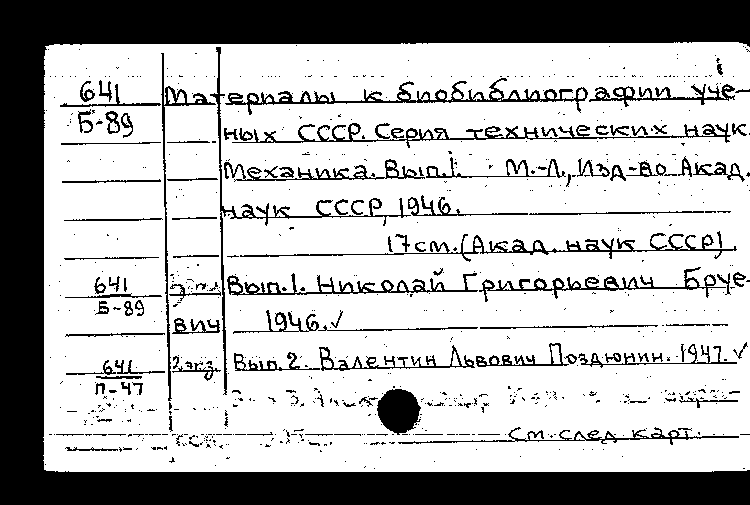 641 Материалы к биобиблиографии уче-
Б-89 ных СССР. Серия технических наук.
Механика. Вып.1. М.-Л., Изд-во Акад.
наук СССР, 1946.
17см. (Акад. наук СССР).
641 Вып.1. Николай Григорьевич Бруе-
Б-89
вич 1946.✓
641 2 экз. Вып. 2. Валентин Львович Поздюнин. 1947.✓
П-47
см. след карт.